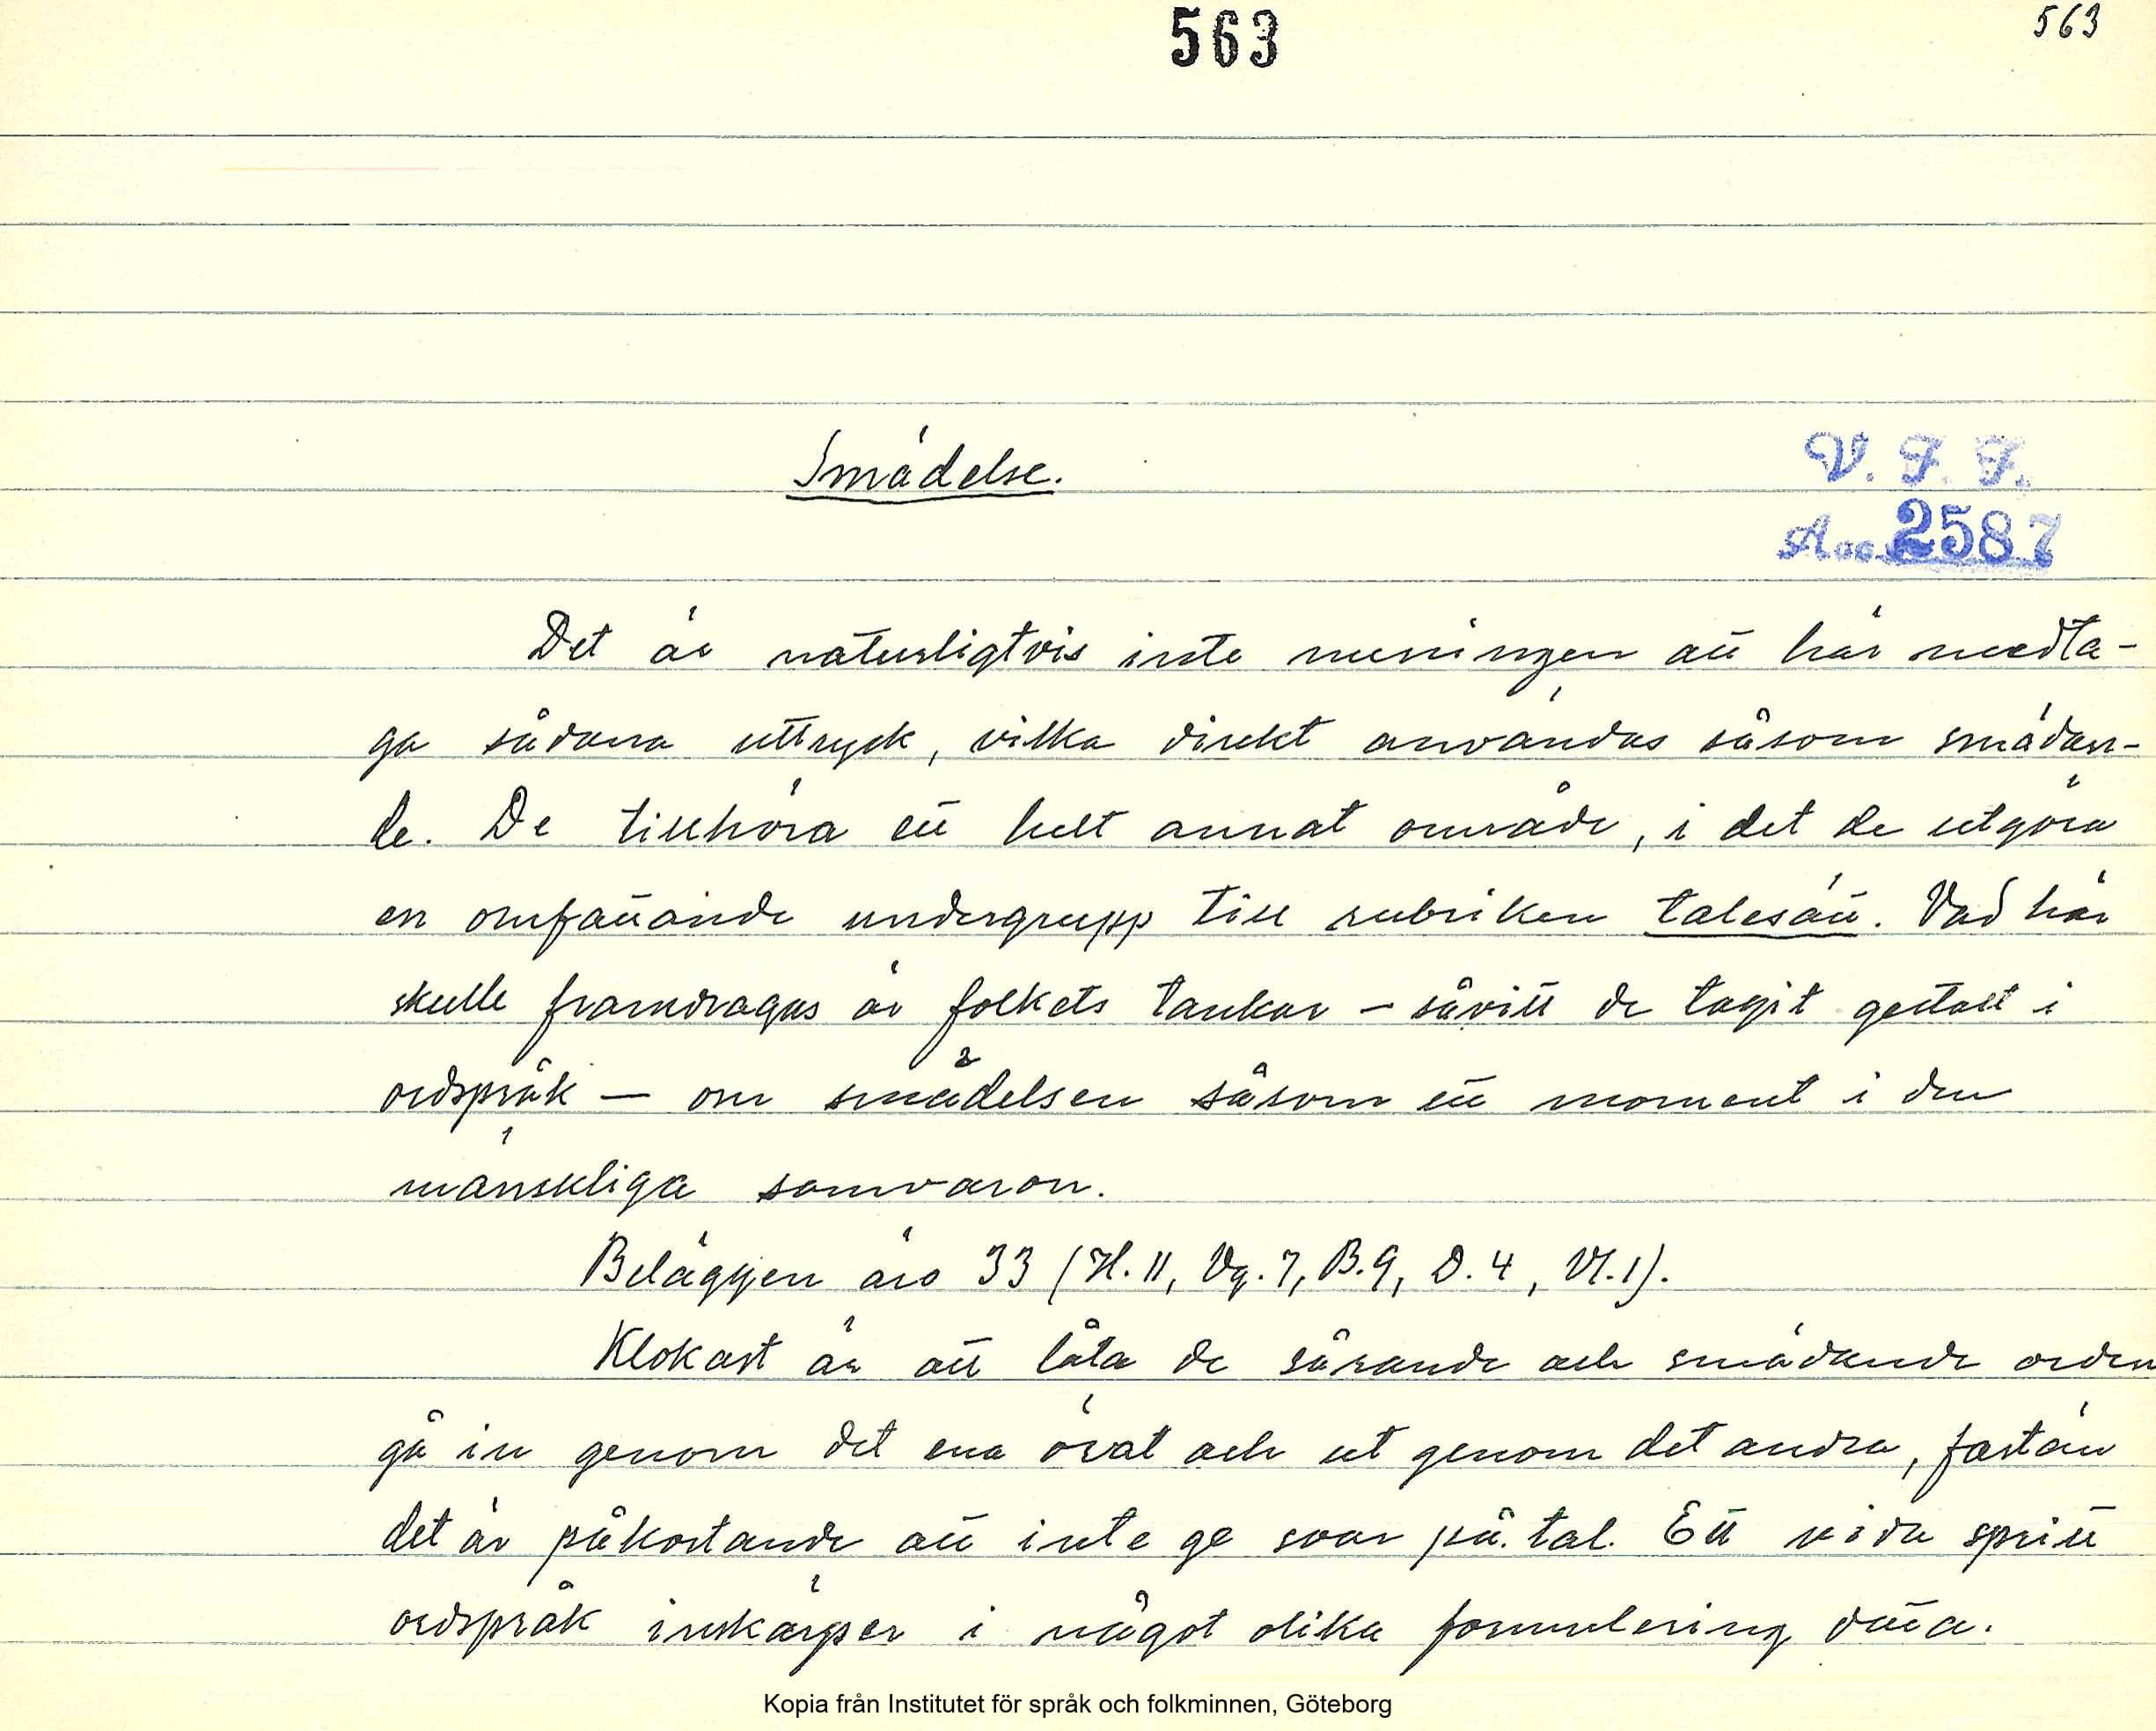 563
563
Smädelse.
V. F. F.
Acc. 2587
Det är naturligtvis inte meningen att här medta-
ga sådana uttryck, vilka direkt användas såsom smädan-
de. De tillhöra ett helt annat område, i det de utgöra
en omfattande undergrupp till rubriken talesätt. Vad här
skulle framdragas är folkets tankar – såvitt de tagit gestalt i
ordspråk – om smädelsen såsom ett moment i den
mänskliga samvaron.
Beläggen äro 33 (H. 11, Vg. 7, B. 9, D. 4, Vl. 1).
Klokast är att låta de sårande och smädande orden
gå in genom det ena örat och ut genom det andra, fastän
det är påkostande att inte ge svar på tal. Ett vida spritt
ordspråk inskärper i något olika formulering detta.
Kopia från Institutet för språk och folkminnen, Göteborg